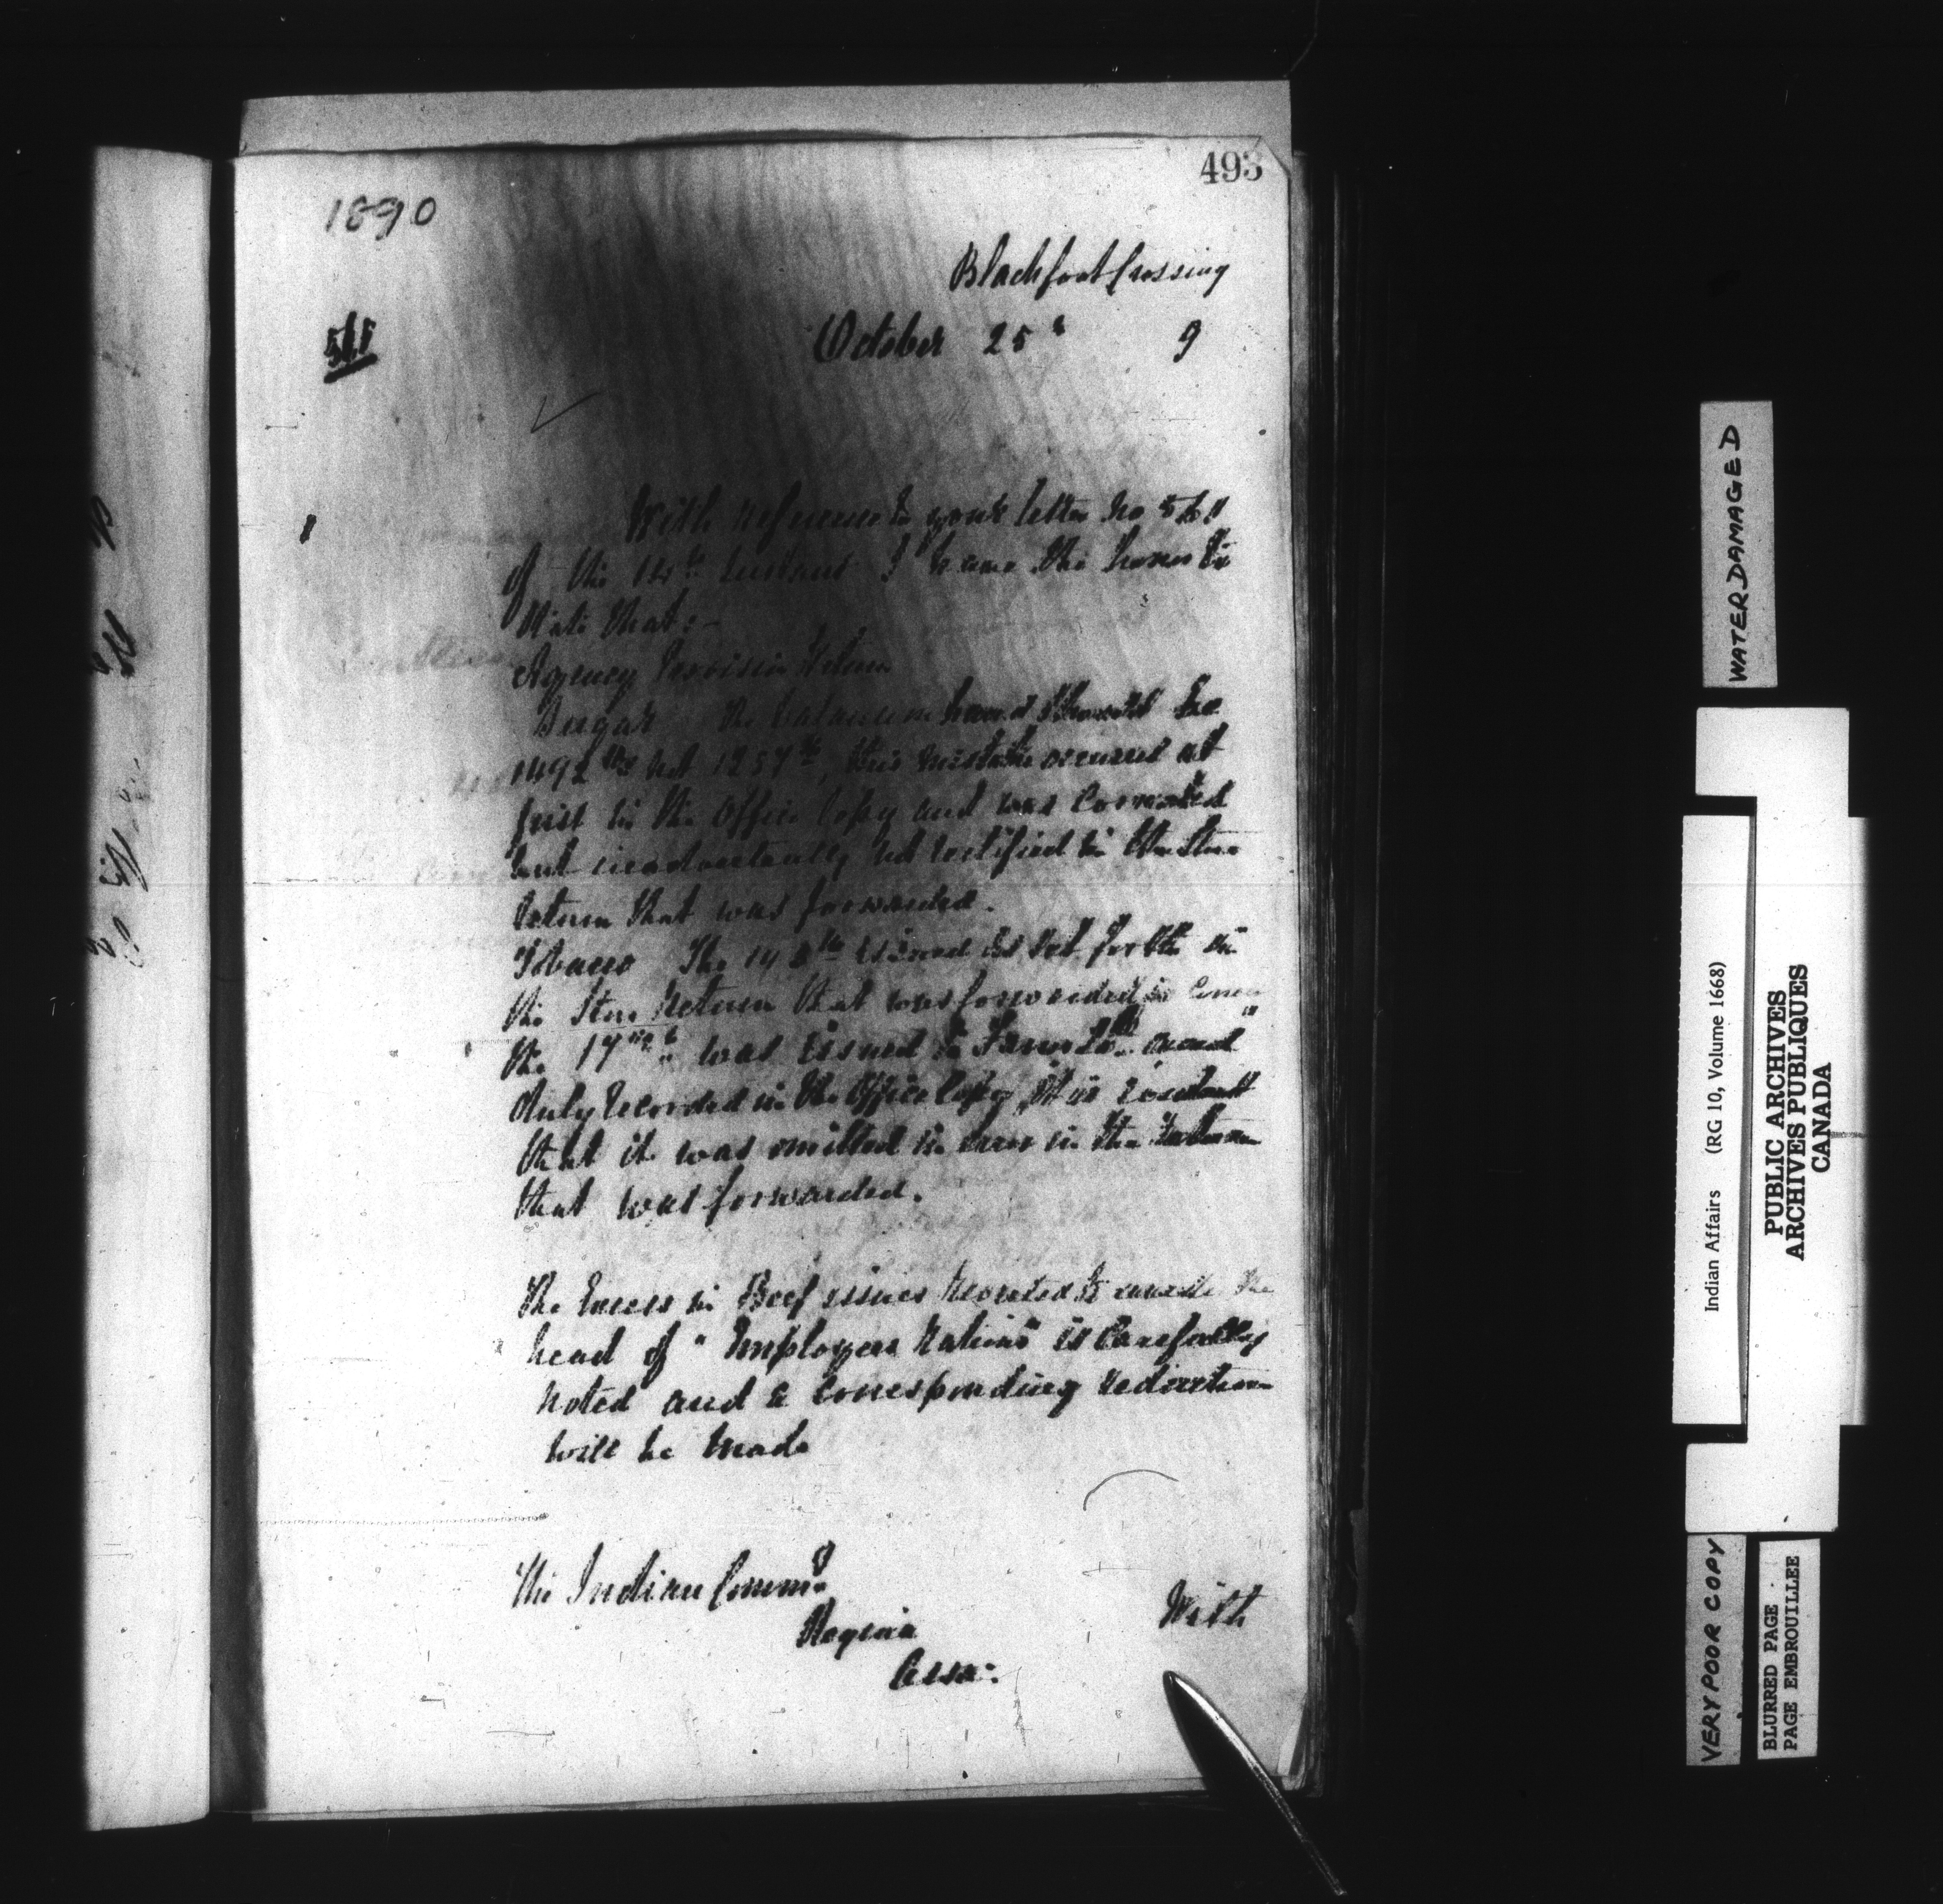 493
1890
Blackfoot Crossing
October 25" 9
With reference to your letter No
of the instant I have the honor to
state that :-
Agency Provision Return
Sugar The balance on hand should be
1492 lbs not 1257 lb, this mistake occurred at
first in the Office Copy and was corrected
but inadvertently not rectified in the Store
Return that was forwarded.
Tobacco The issued as set forth in
the Store Return that was forwarded is
the 17 was issued to Farm and
duly recorded in the Office Copy, it is evident
that it was omitted in error in the Return
that was forwarded.
The Excess in Beef issues under the
head of "Employees Rations" is carefully
noted and a corresponding reduction
will be made
The Indian Commr
Regina
Assa:
With
WATER DAMAGED
Indian Affairs (RG 10, Volume 1668)
PUBLIC ARCHIVES
ARCHIVES PUBLIQUES
CANADA
VERY POOR COPY
BLURRED PAGE
PAGE EMBROUILLEE